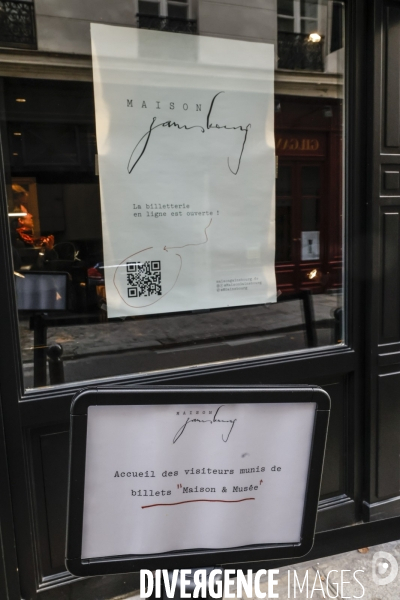 MAISON
gainsbourg
La billetterie
en ligne est ouverte !
MAISON
gainsbourg
Accueil des visiteurs munis de
billets "Maison & Musée"
DIVERGENCE IMAGES